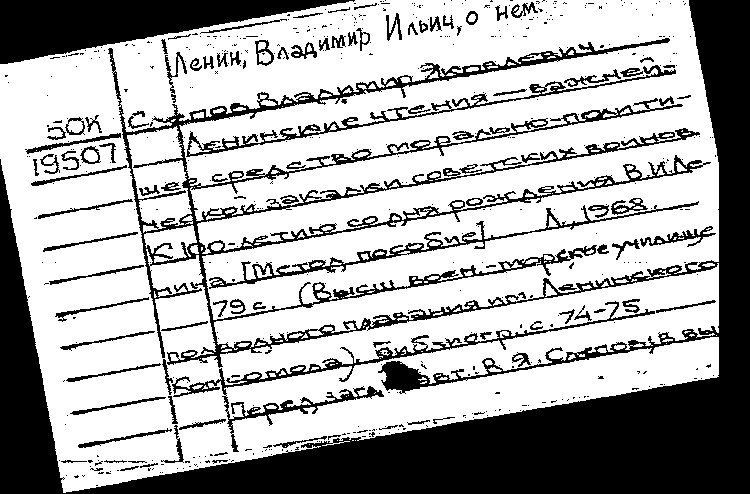 Ленин, Владимир Ильич, о нем.
50К
19507
Слепов, Владимир Яковлевич.
Ленинские чтения — важней-
шее средство морально-полити-
ческой закалки советских воинов
К 100-летию со дня рождения В.И.Ле-
нина. [Метод пособие]. Л., 1968.
79 с. (Высш воен.-морское училище
подводного плавания им. Ленинского
Комсомола). Библиогр.: с. 74-75.
Перед загл авт.: В.Я. Слепов, в вы